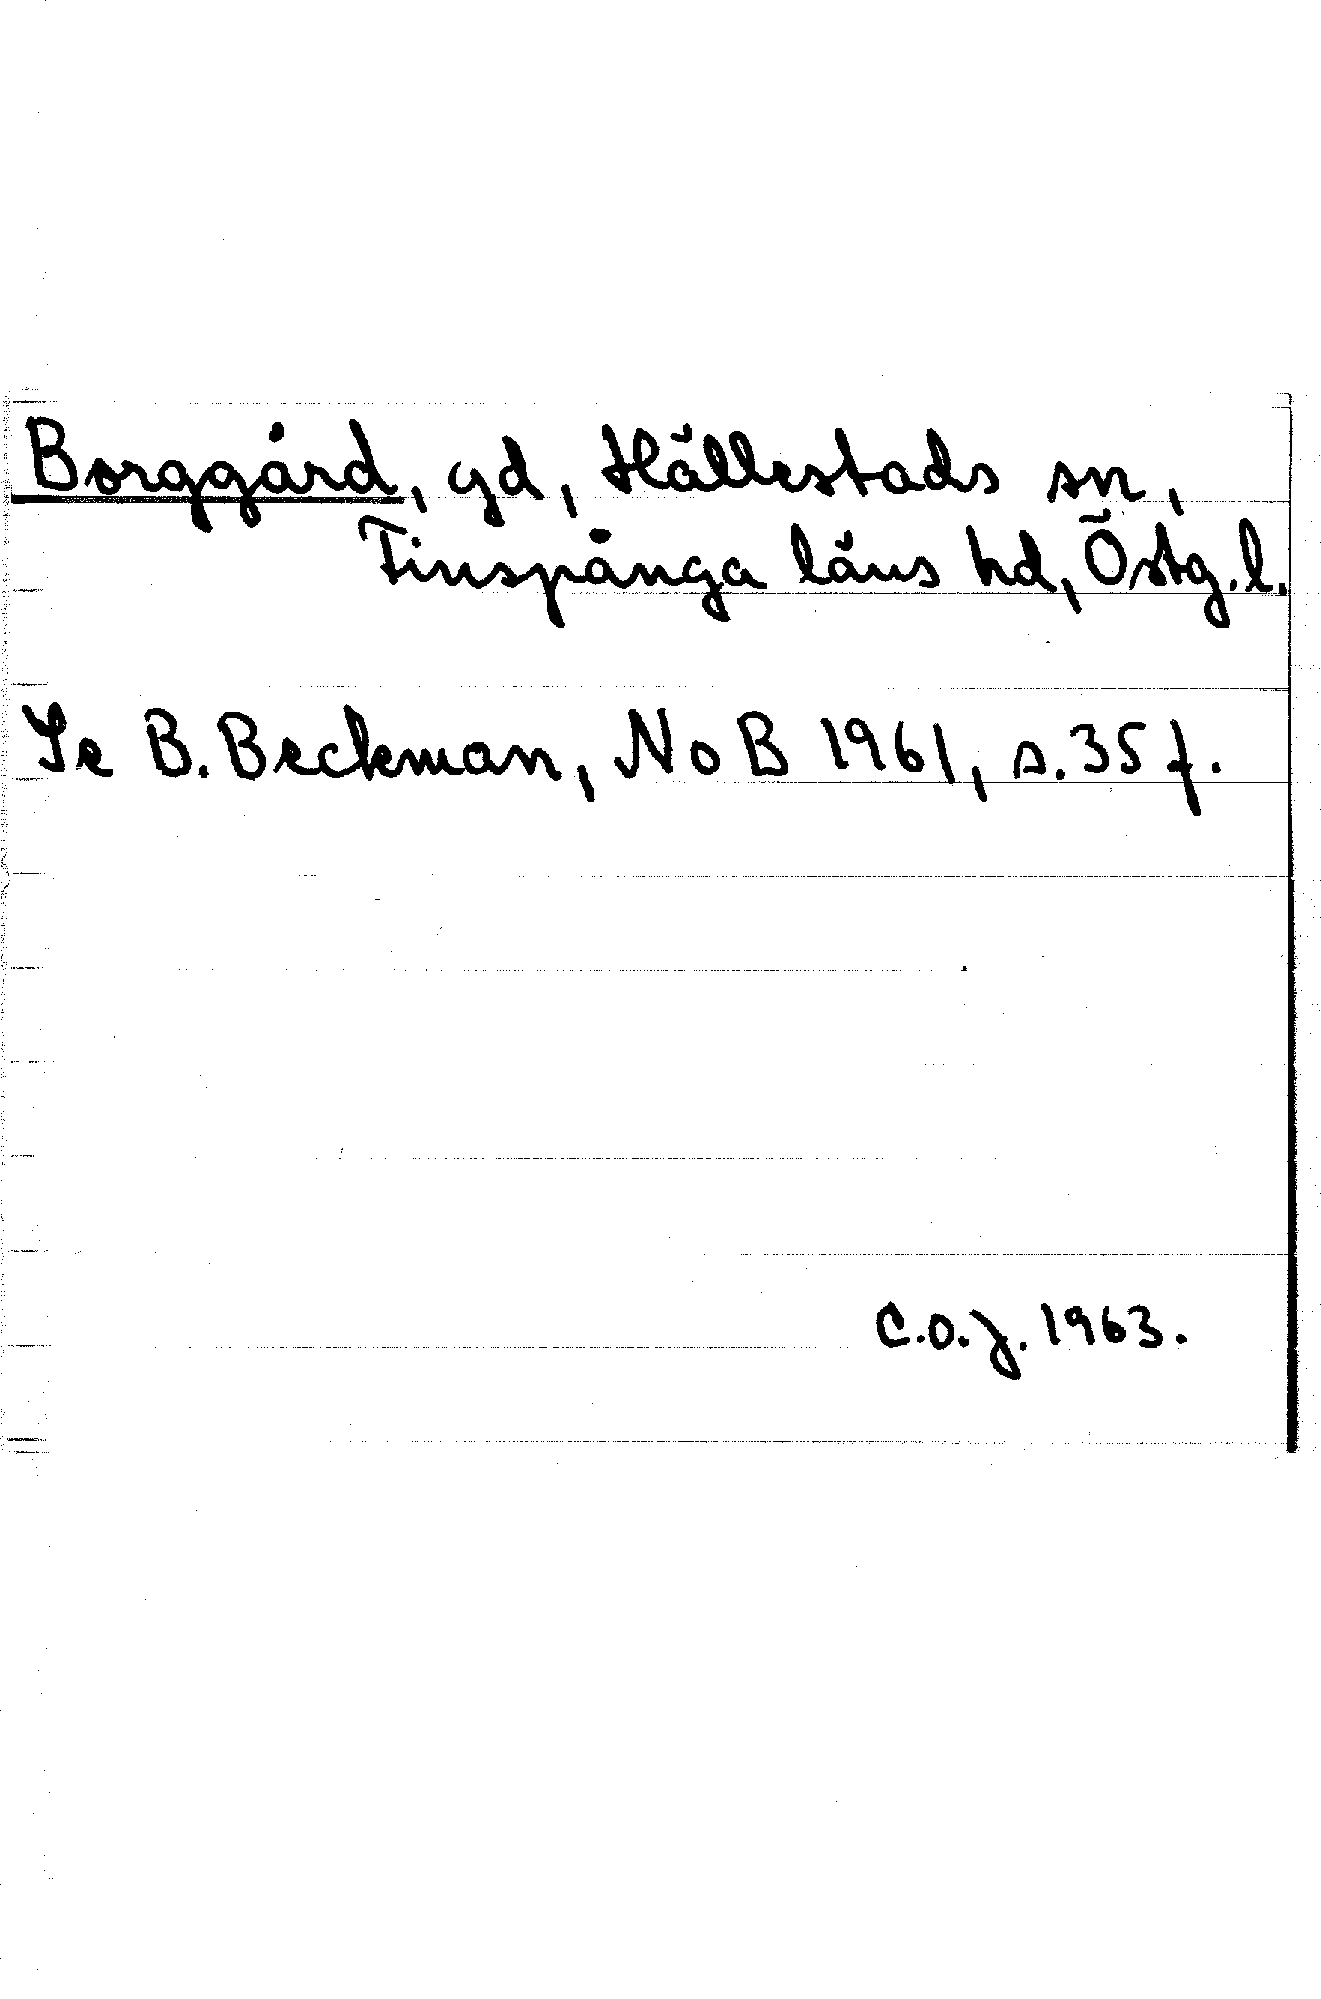 Borggård, gd, Hällestads sn,
Finspånga läns hd, Östg. l.
Se B. Beckman, NoB 1961, s. 35 f.
C.O.J. 1963.